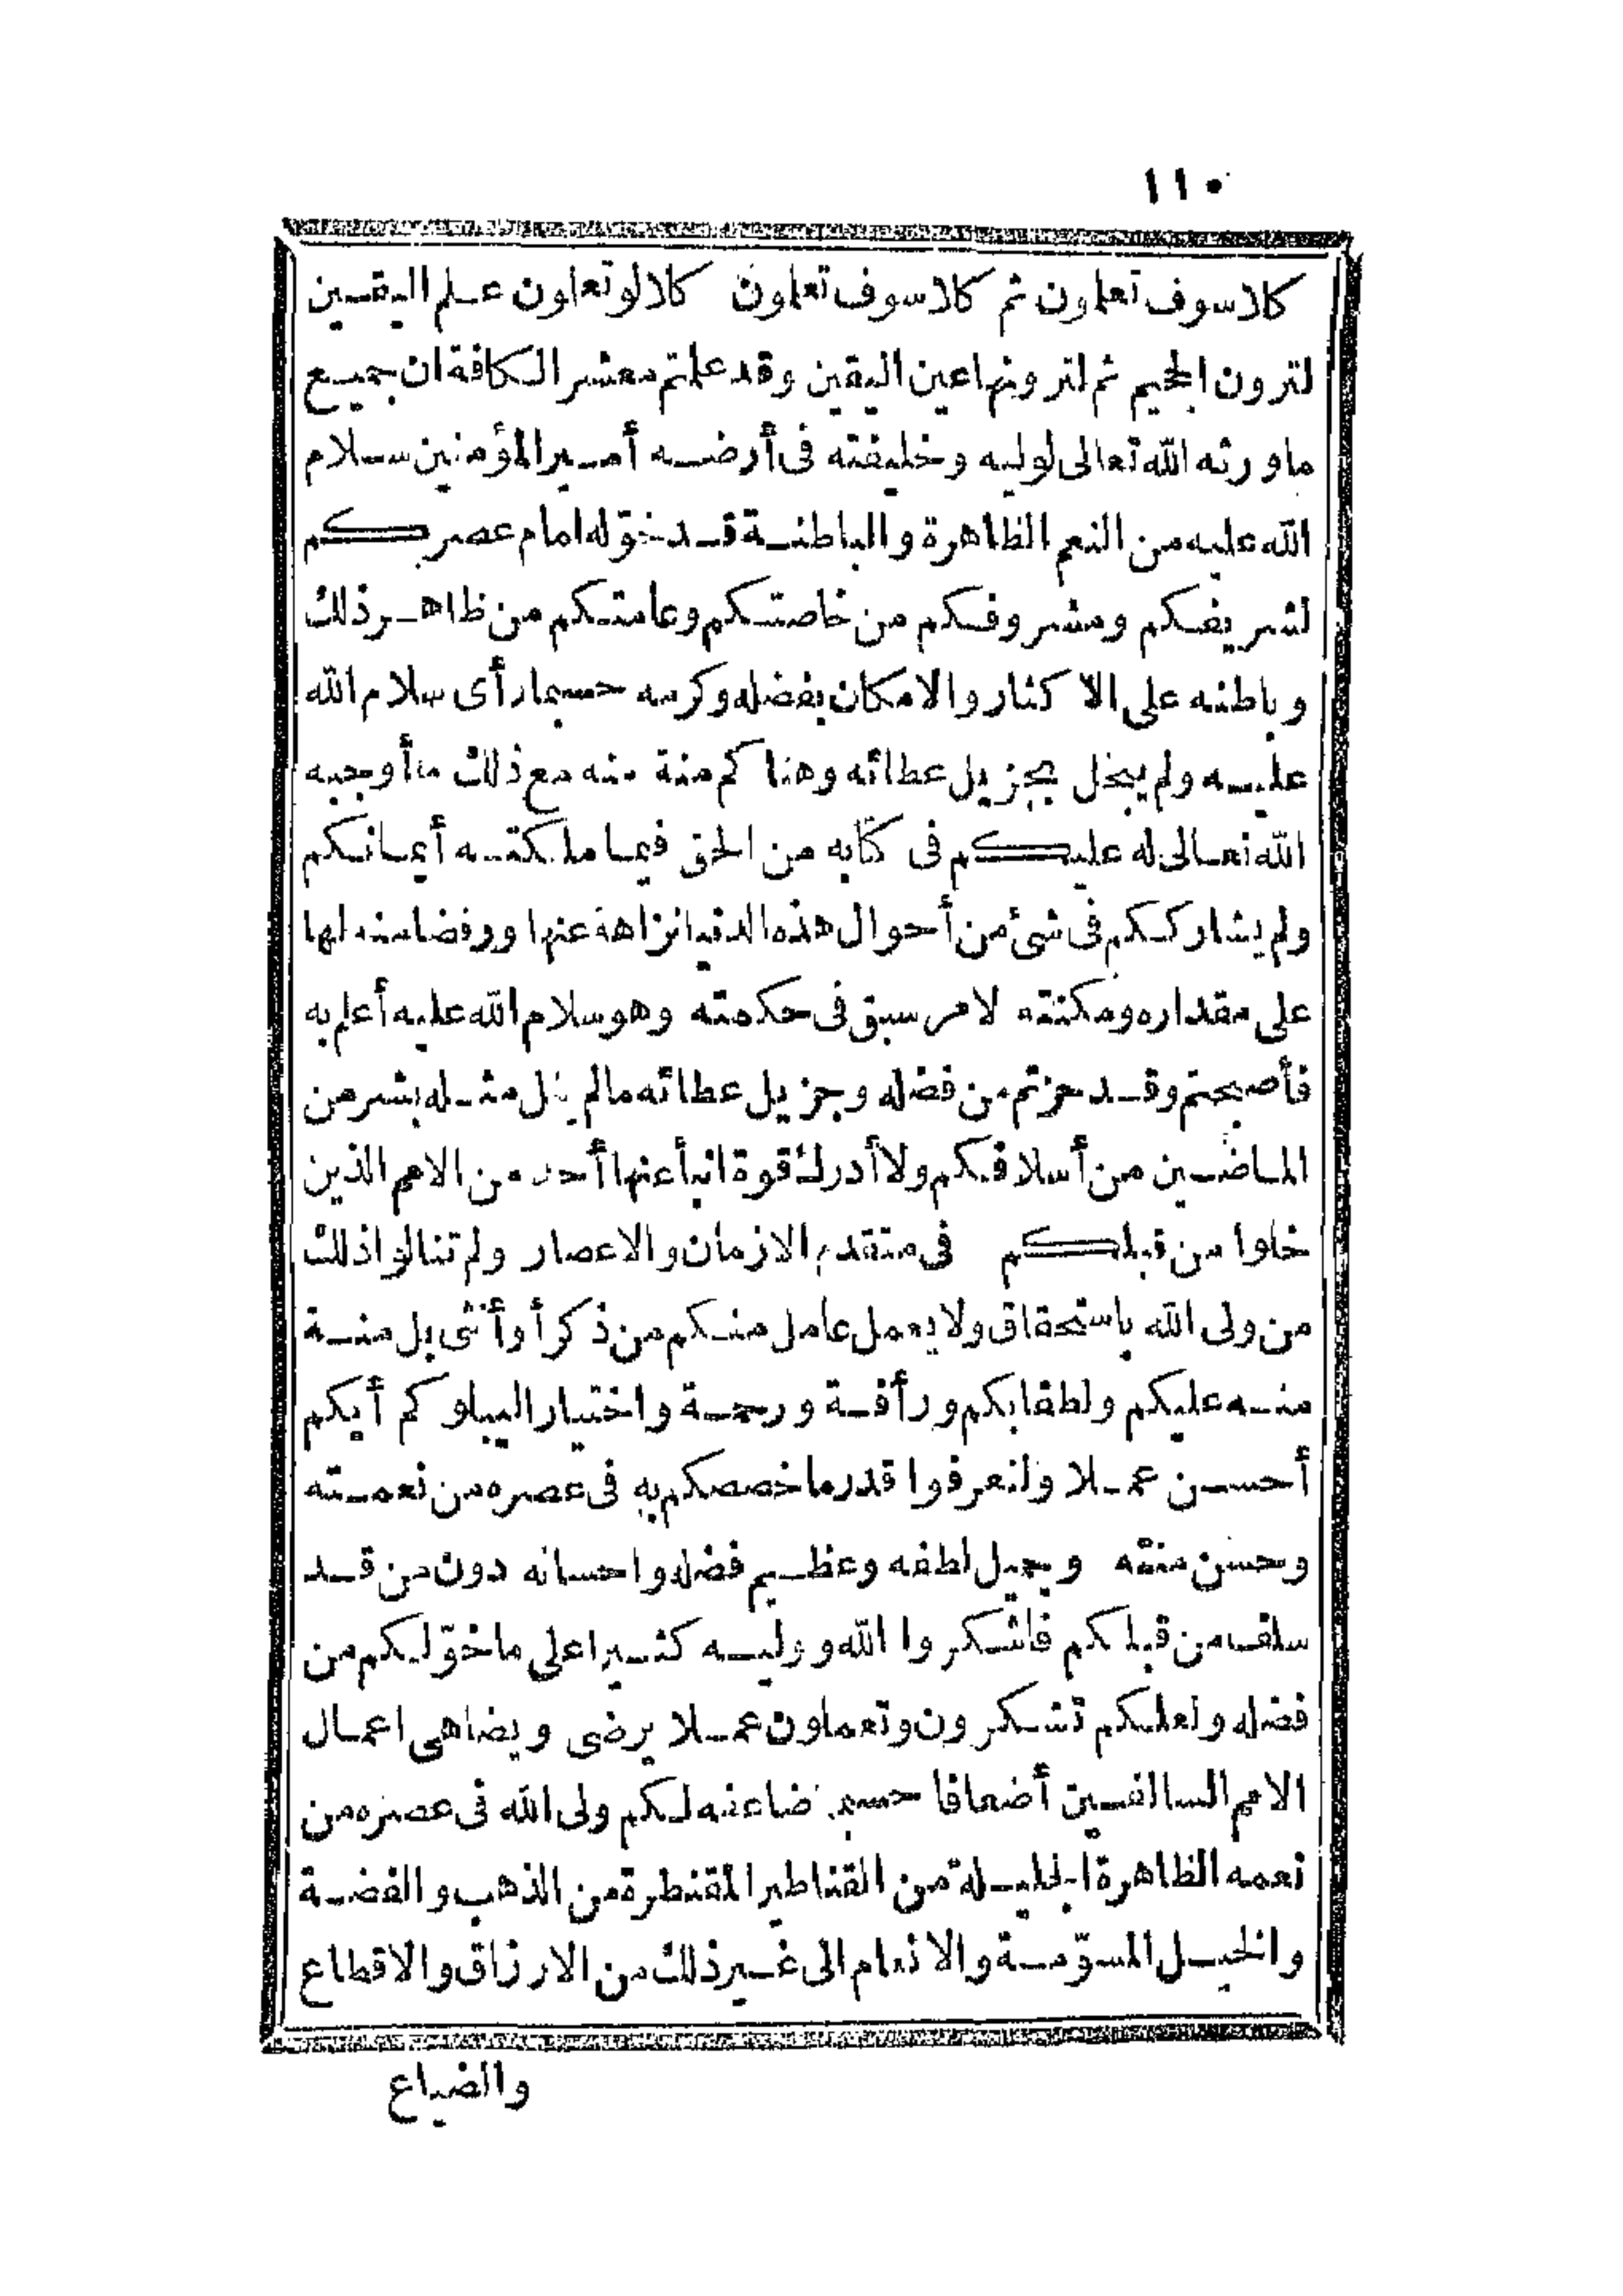 ١١٠
كلا سوف تعلمون ثم كلا سوف تعلمون كلا لو تعلمون علم اليقين
لترون الجحيم ثم لترونها عين اليقين وقد علمتم معشر الكافة ان جميع
ما ورثه الله تعالى لوليه وخليفته فى أرضه أمير المؤمنين سلام
الله عليه من النعم الظاهرة والباطنة قد خوّله امام عصركم
لشريفكم ومشروفكم من خاصتكم وعامتكم من ظاهر ذلك
وباطنه على الاكثار والامكان بفضله وكرمه حسبما رأى سلام الله
عليه ولم يبخل بجزيل عطائه وهناكم منة منه مع ذلك ما أوجبه
الله تعالى له عليكم فى كتابه من الحق فيما ملكته أيمانكم
ولم يشارككم فى شئ من أحوال هذه الدنيا نزاهة عنها ورفضا منه لها
على مقداره ومكنته لامر سبق فى حكمته وهو سلام الله عليه أعلم به
فأصبحتم وقد حزتم من فضله وجزيل عطائه مالم ينل مثله بشر من
الماضين من أسلافكم ولا أدرك قوة انبأ عنها أحد من الامم الذين
خلوا من قبلكم فى متقدم الازمان والاعصار ولم تنالوا ذلك
من ولى الله باستحقاق ولا بعمل عامل منكم من ذكر أو أنثى بل منة
منه عليكم ولطفا بكم ورأفة ورحمة واختبار ليبلوكم أيكم
أحسن عملا ولتعرفوا قدر ما خصصكم به فى عصره من نعمته
وحسن منته وجميل لطفه وعظيم فضله واحسانه دون من قد
سلف من قبلكم فاشكروا الله ووليه كثيرا على ما خوّلكم من
فضله ولعلكم تشكرون وتعملون عملا يرضى ويضاهى اعمال
الامم السالفين أضعافا حسب ضاعفه لكم ولى الله فى عصره من
نعمه الظاهرة الجليلة من القناطير المقنطرة من الذهب والفضة
والخيل المسوّمة والانعام الى غير ذلك من الارزاق والاقطاع
والضياع